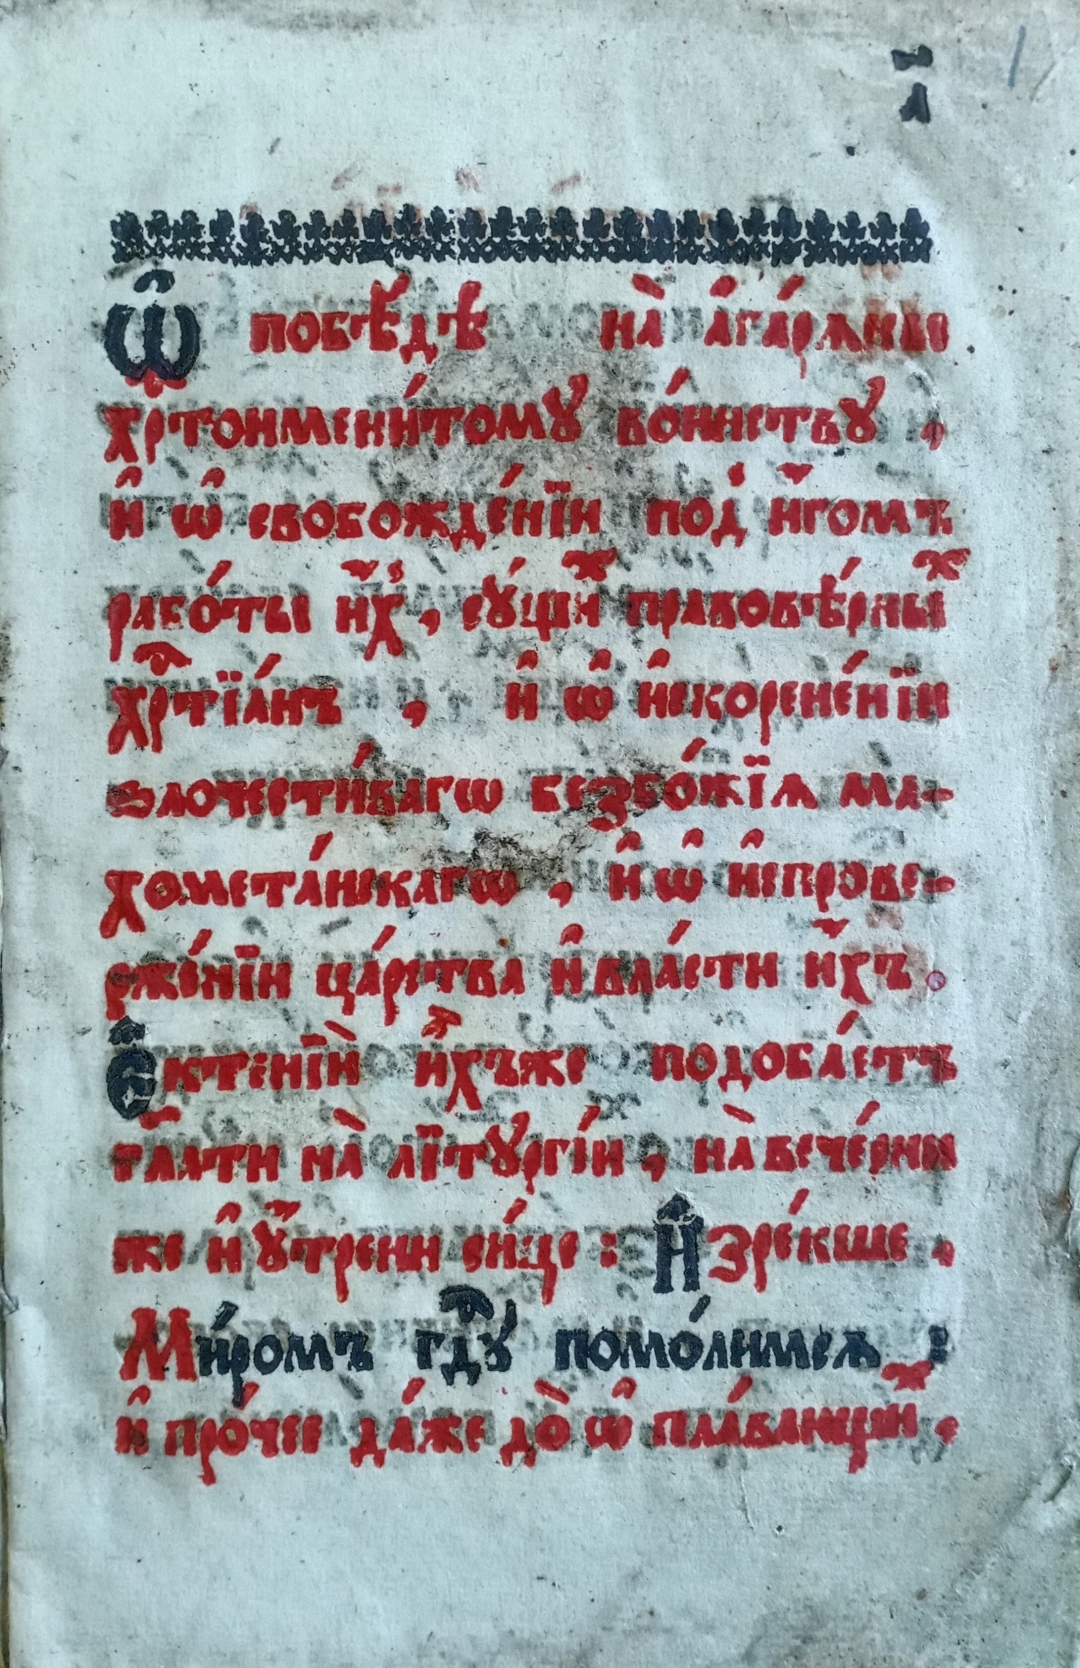 1
а҃
Ѡ҆ побѣ́дѣ на̀ а҆гарѧ́ны
хрⷭ҇тоимени́тому во́инству ,
и҆ ѡ҆ свобожде́нїи под̾ и҆́гомъ
рабо́ты и҆́х̾ , су́щиⷯ правовѣ́рныⷯ
хрⷭ҇тїа́нъ , и҆ ѡ҆ и҆скорене́нїи
ѕлочести́вагѡ безбо́жїѧ ма-
хомета́нскагѡ , и҆ ѡ҆ и҆спрове-
рже́нїи ца́рства и҆ вла́сти и҆́хъ .
Е҆ктенїѝ и҆́хъже подоба́етъ
гл҃ати на̀ лїтꙋргі́и , на̀ вече́рни
же и҆ ᲂу҆́трени си́це : И҆зре́кше ,
Ми́ромъ гдⷭ҇у помо́лимсѧ :
и҆ про́чее да́же до̀ ѡ҆ пла́вающиⷯ ,